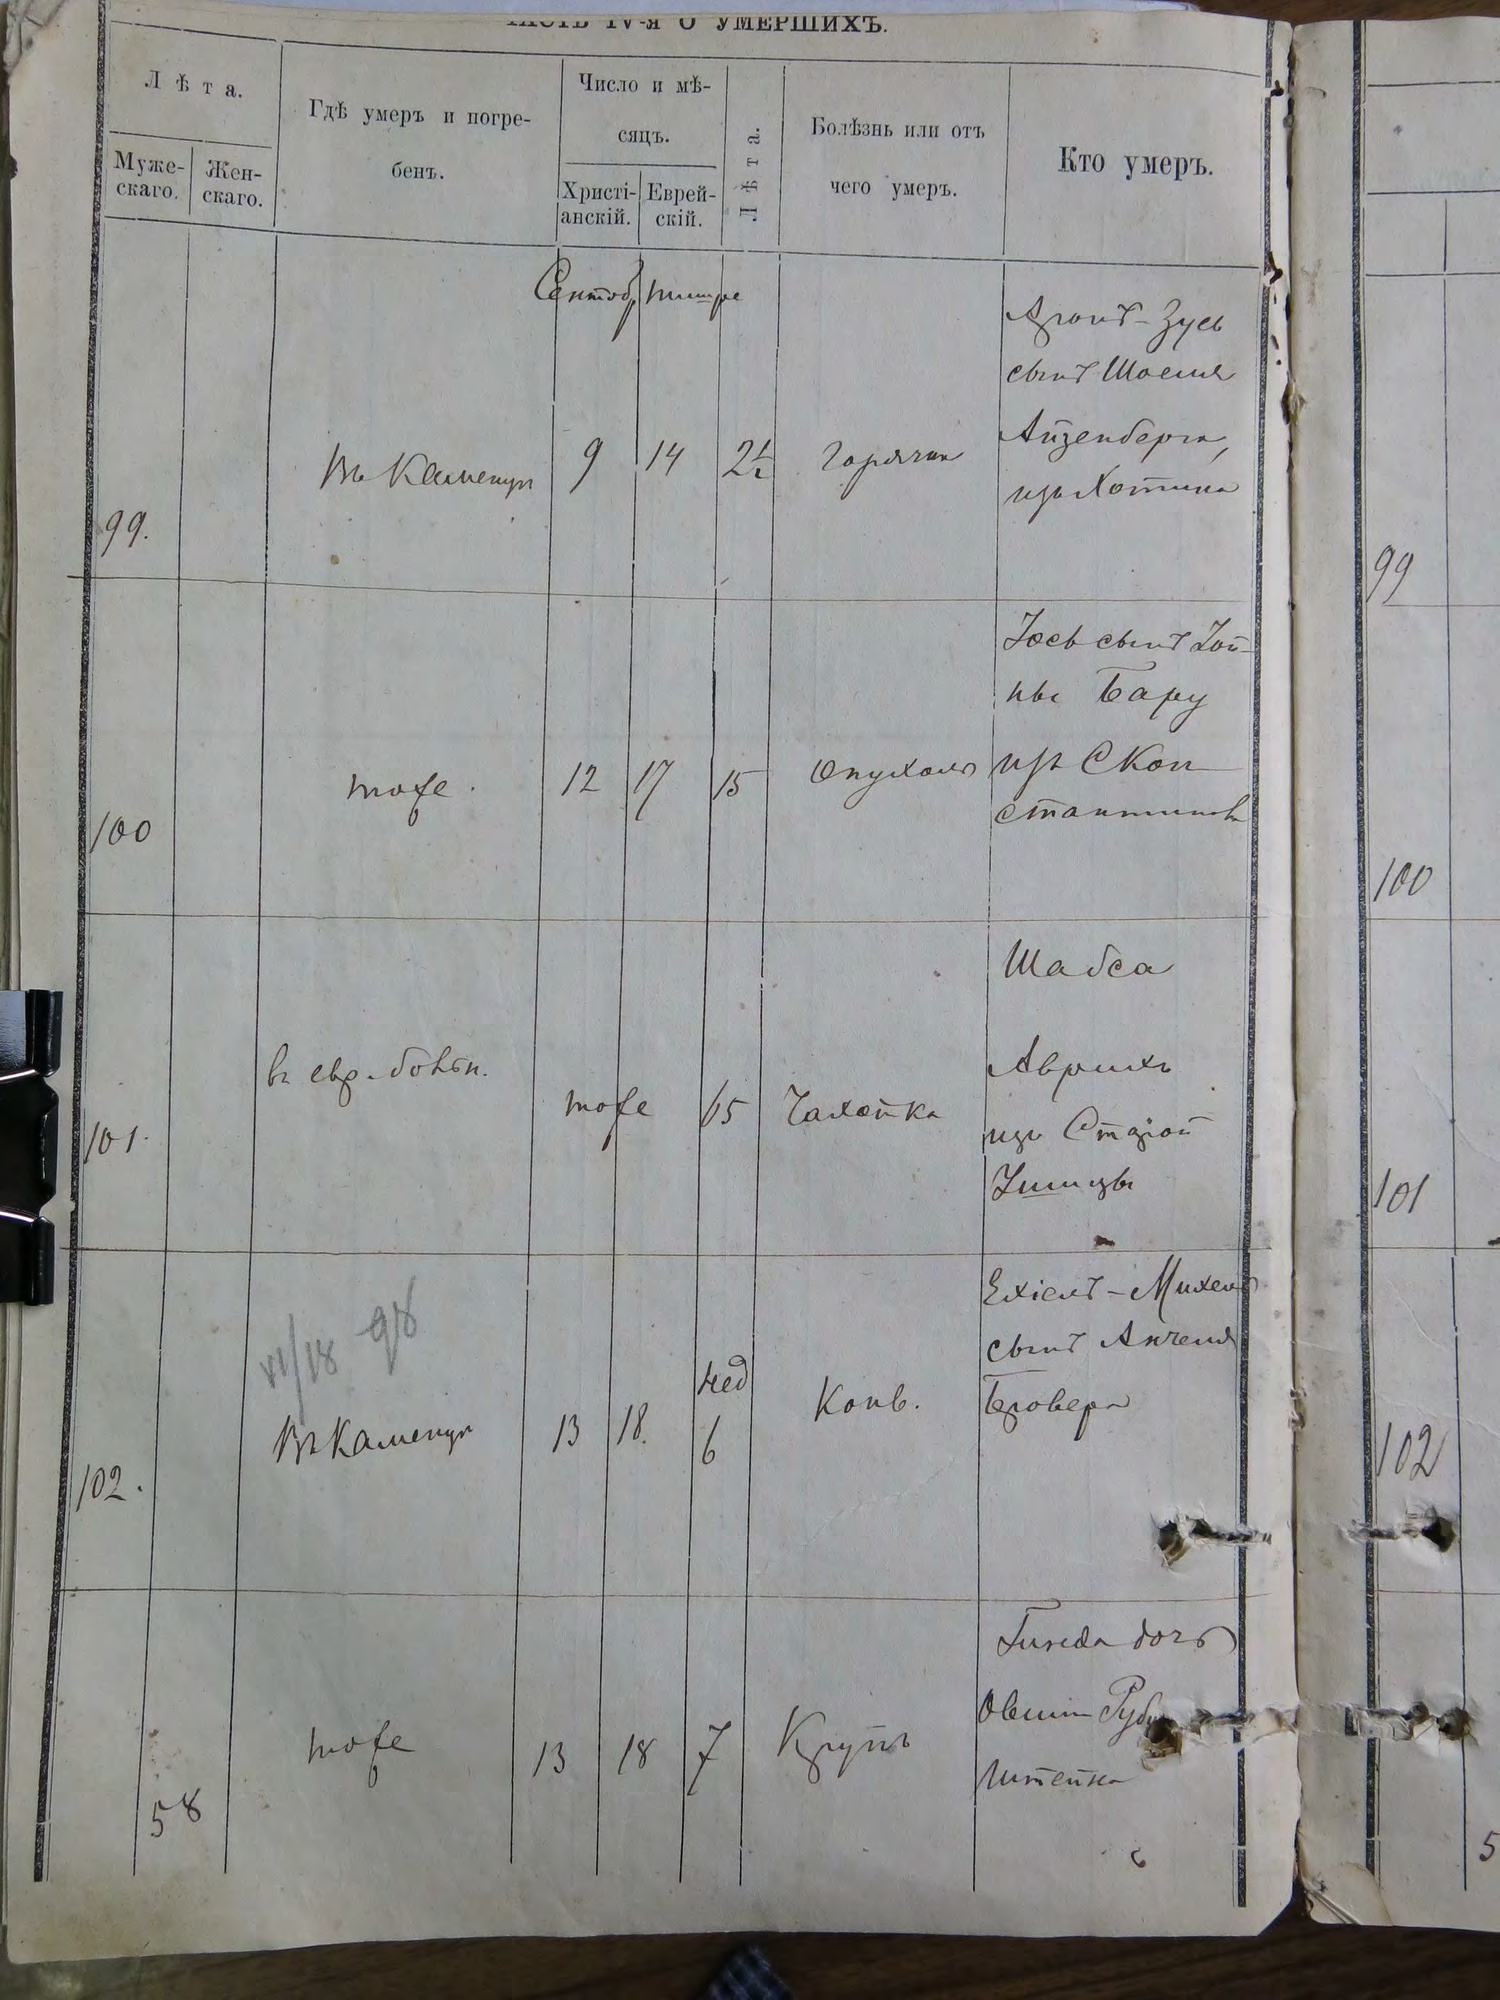 ЧАСТЬ IV-я О УМЕРШИХЪ.
Лѣта.
Мужескаго.
Женскаго.
Гдѣ умеръ и погре-
бенъ.
Число и мѣ-
сяцъ.
Христі-
анскій.
Еврей-
скій.
Лѣта.
Болѣзнь или отъ
чего умеръ.
Кто умеръ.
Сентяб. тишре
99.
Въ Каменцѣ
9
14
2½
Горячка
Аронъ-Зусь
сынъ Шоеля
Айзенберга,
изъ Хотина
99
100
тоже.
12
17
15
Опухоль
Іось сынъ Іой-
ны Бару
изъ С Кон
стантинова
100
101.
въ евр. больн.
тоже
65
Чахотка
Шабса
Аврихъ
изъ Старой
Ушицы
101
VI/18 98
102.
Въ Каменцѣ
13
18.
нед
6
Конв.
Ехіель-Михель
сынъ Анчеля
Бровера
102
58
тоже
13
18
7
Крупъ
дочь
Овшии Руби
штейна
5